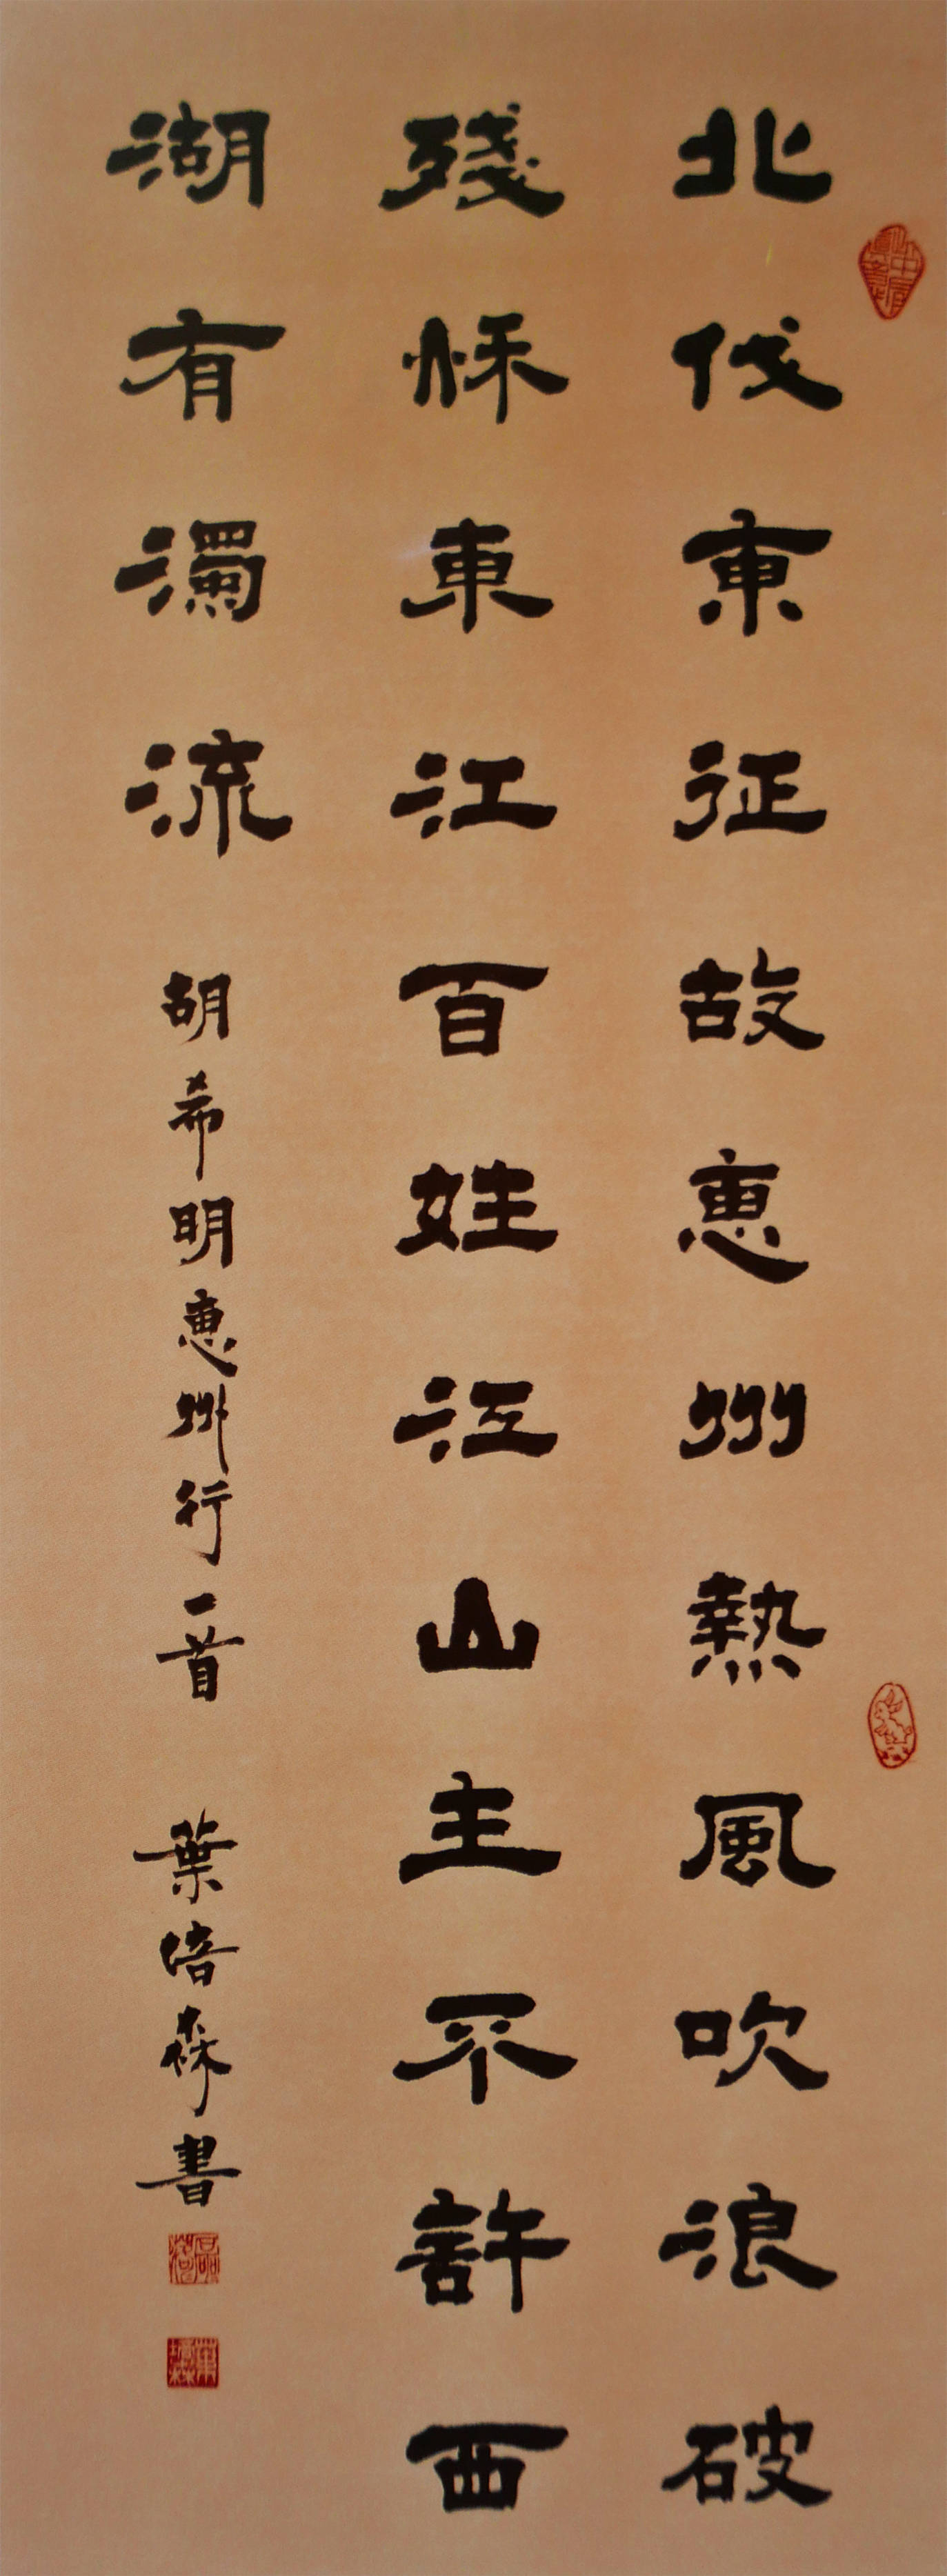 北伐東征故惠州熱風吹浪破
殘秌東江百姓江山主不許西
湖有濁流 胡希明惠州行一首 葉培森書